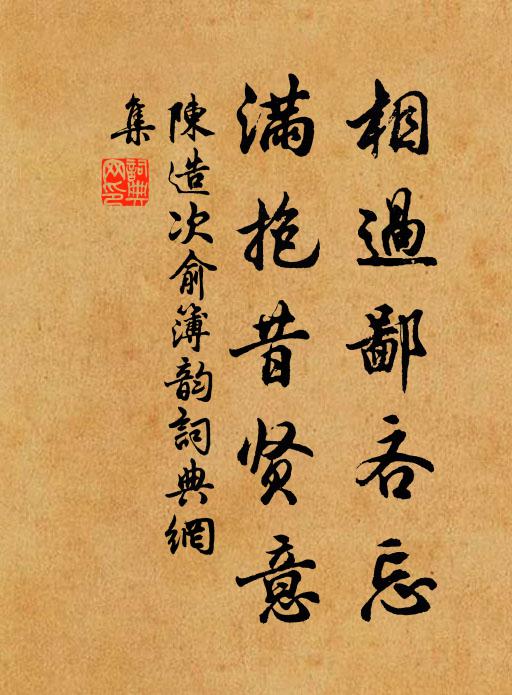 相過鄙吝忘
滿抱昔贤意
陳造次俞簿韵詞典網
集
詞典
网印